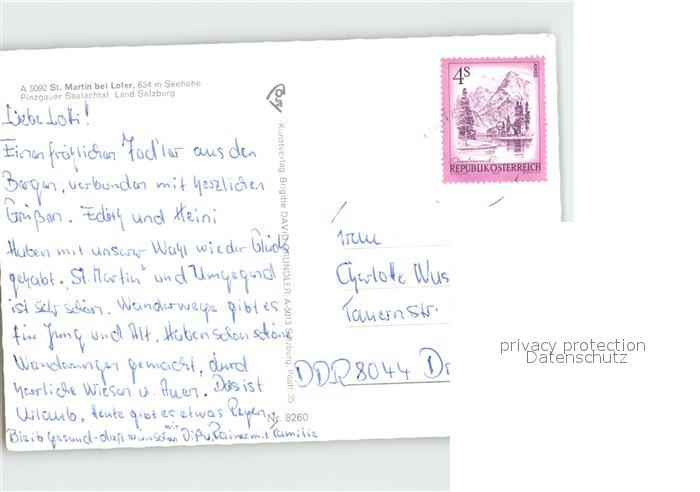 A 5092 St. Martin bei Lofer, 634 m Seehöhe
Pinzgauer Saalachtal, Land Salzburg
Liebe Lotti!
Einen fröhlichen Jodler aus den
Bergen, verbunden mit herzlichen
Grüßen. Edith und Heini
Haben mit unserer Wahl wieder Glück
gehabt. "St. Martin" und Umgegend
ist sehr schön. Wanderwege gibt es
für Jung und Alt. Haben schon schöne
Wanderungen gemacht, durch
herrliche Wiesen u. Auen. Das ist
Urlaub, heute gibt es etwas Regen.
Bleib Gesund - daß wünschen wir Dir Rainer mit Familie
Kunstverlag Brigitte DAVID-GRÜNDLER, A-5013 Salzburg, Postf. 35
Nr. 8260
4S
REPUBLIK ÖSTERREICH
Frau
Charlotte Wus
Tauernstr.
DDR 8044 Dr
privacy protection
Datenschutz